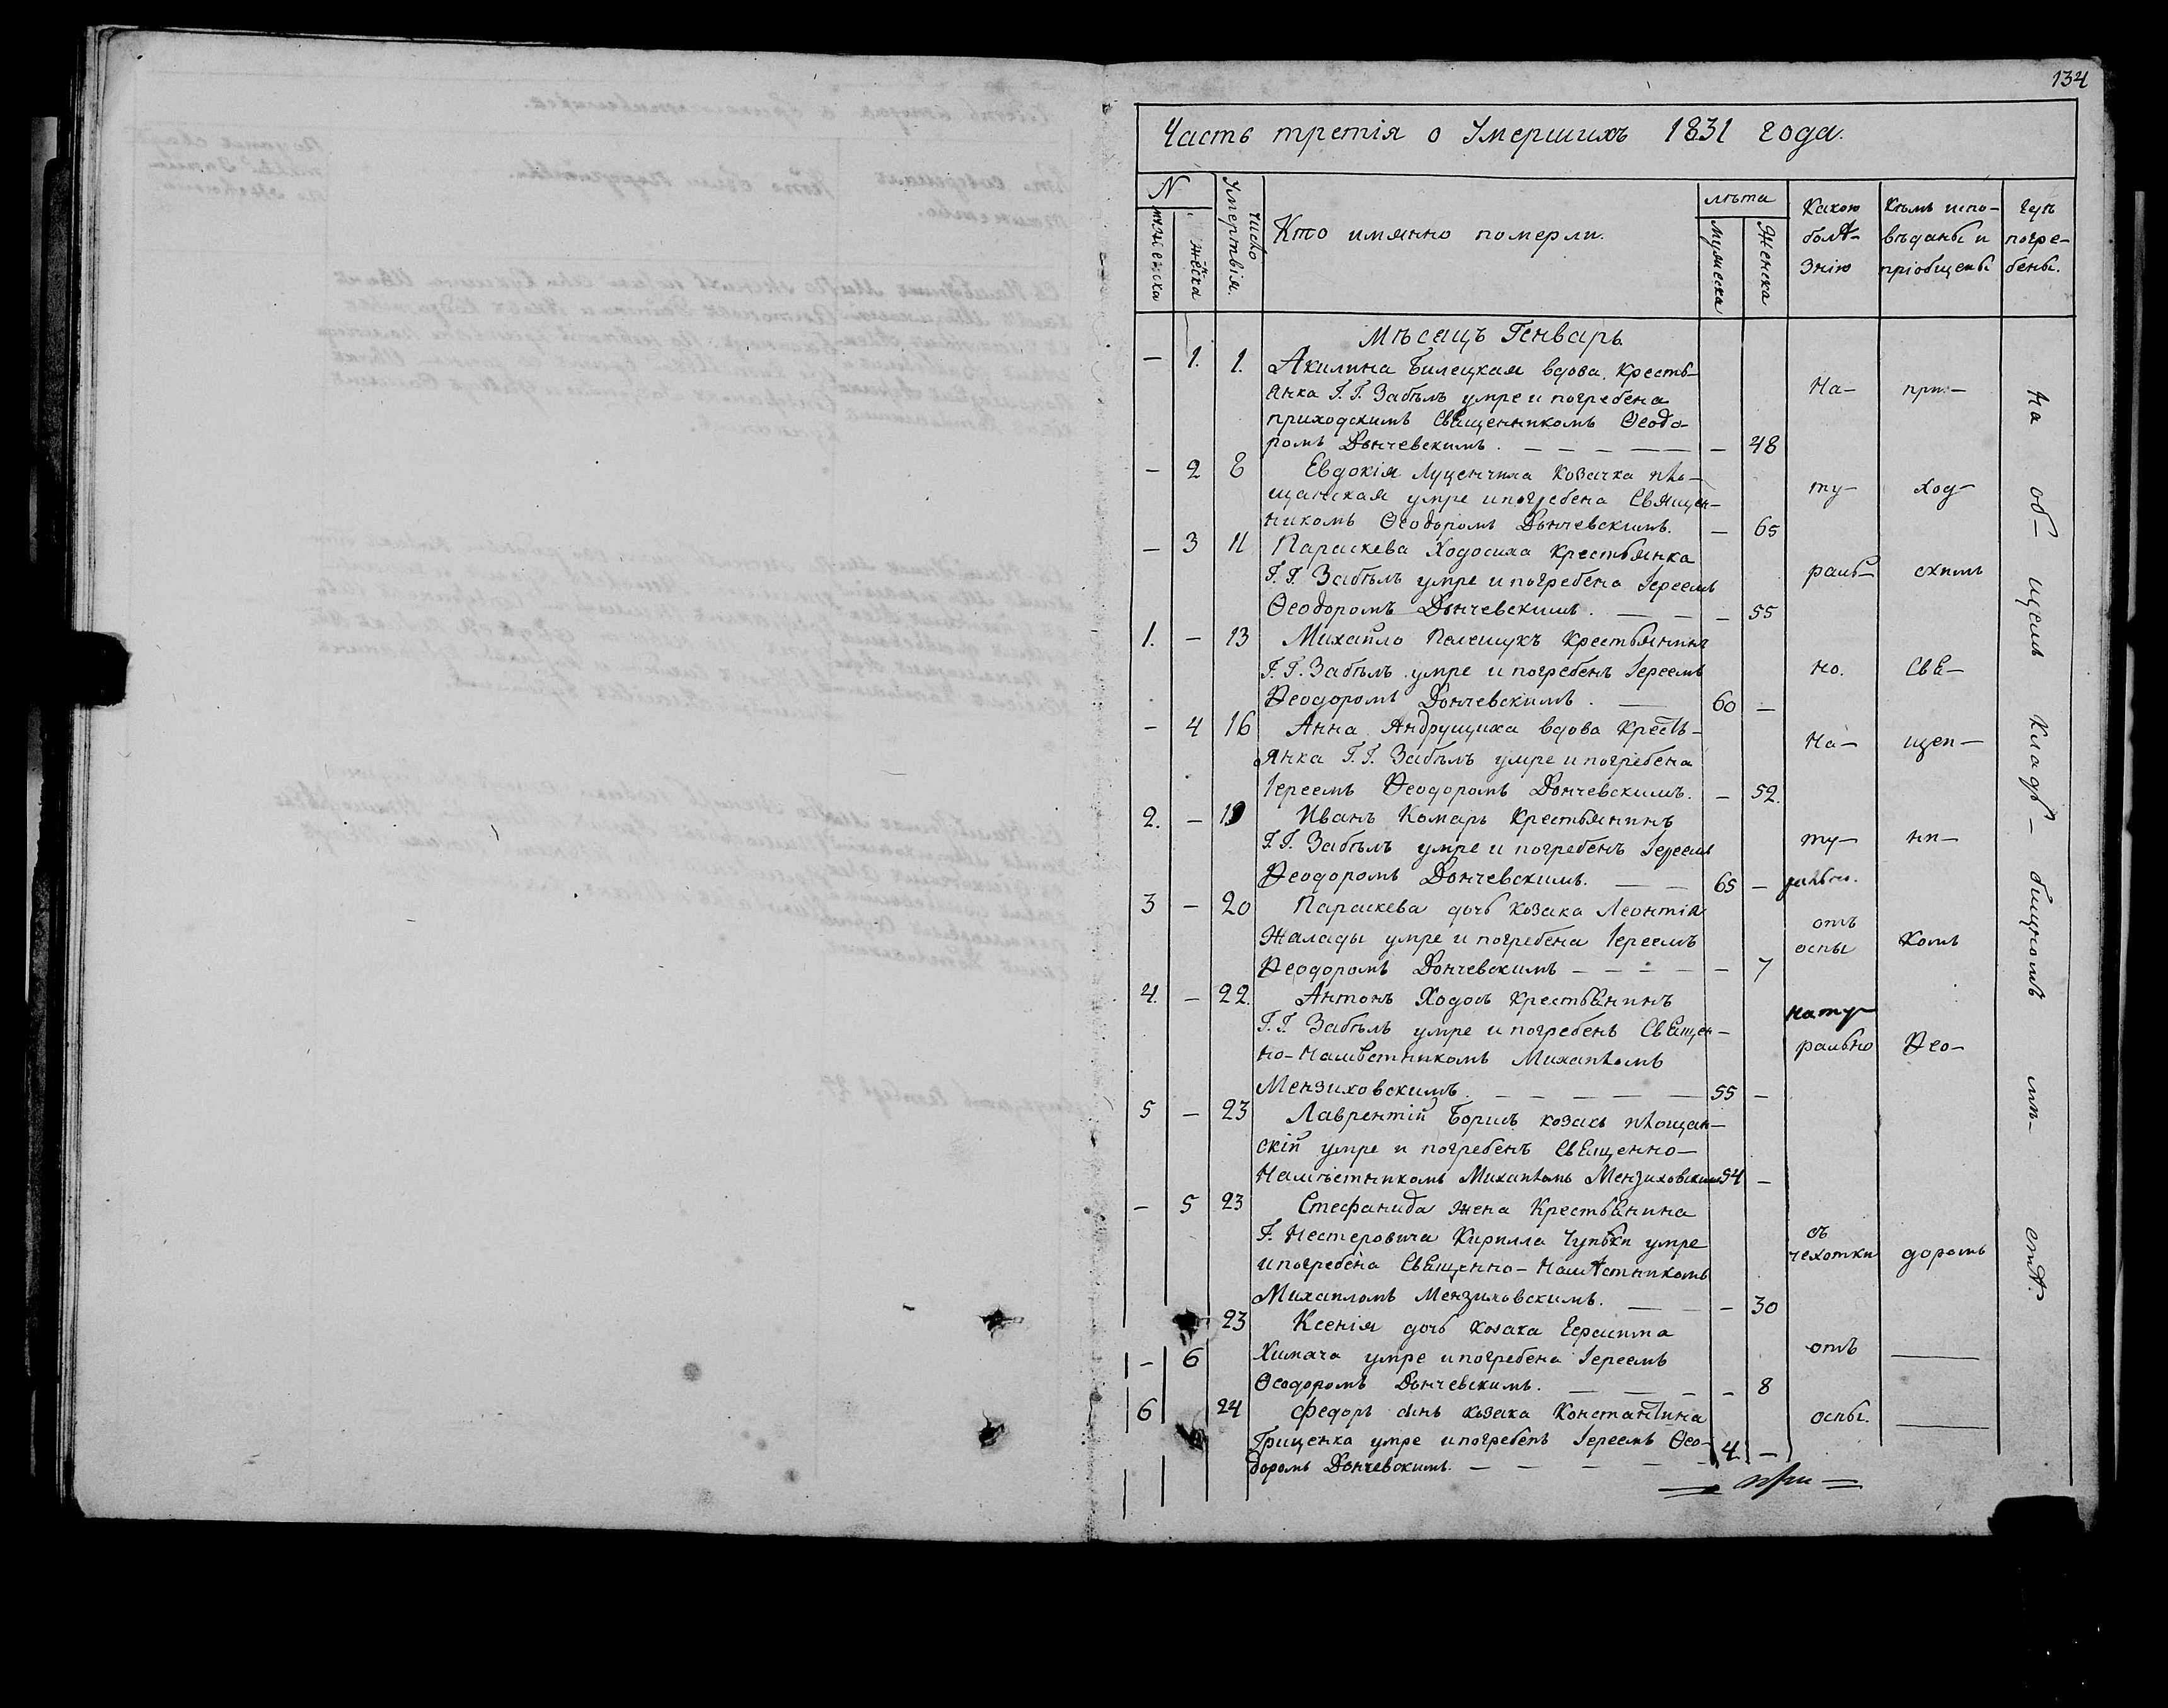 134
Часть третія о Умершихъ 1831 года.
N
мужеска
женска
Число Умертвія.
Кто имянно померли.
лѣта
мужеска
Женска
Какою болѣзнію
Кѣмъ исповѣданы и пріобщены
Гдѣ погребены.
Мѣсацъ Генварь
— 1. 1. Акилина Билецкая вдова Кресть-
янка Г. Г. Забѣлъ умре и погребена
приходскимъ Священникомъ Ѳеодо-
ромъ Дончевскимъ. — 48
— 2 8 Евдокія Луценчиха Козачка пло-
щанская умре и погребена Священ-
никомъ Ѳеодоромъ Дончевскимъ. — 65
— 3 11 Параскева Ходосиха Крестьянка
Г. Г. Забѣлъ умре и погребена Іереемъ
Ѳеодоромъ Дончевскимъ. — 55
1. — 13 Михайло Пелешукъ Крестьянинъ
Г. Г. Забѣлъ умре и погребенъ Іереемъ
Ѳеодоромъ Дончевскимъ. 60 —
— 4 16 Анна Андрущиха вдова Кресть-
янка Г. Г. Забѣлъ умре и погребена
Іереемъ Ѳеодоромъ Дончевскимъ. — 52.
2. — 19 Иванъ Комаръ Крестьянинъ
Г. Г. Забѣлъ умре и погребенъ Іереемъ
Ѳеодоромъ Дончевскимъ. 65 —
3 — 20 Параскева дочь козака Леонтія
Жалады умре и погребена Іереемъ
Ѳеодоромъ Дончевскимъ — 7
4. — 22. Антонъ Ходосъ крестьянинъ
Г. Г. Забѣлъ умре и погребенъ Священ-
но-Намѣстникомъ Михаиломъ
Мензиховскимъ. 55 —
5 — 23 Лаврентій Борисъ козакъ площан-
скій умре и погребенъ Священно-
Намѣстникомъ Михаиломъ Мензиховскимъ 54 —
— 5 23 Стефанида жена Крестьянина
Г. Нестеровича Кирилла Чупьки умре
и погребена Священно-Намѣстникомъ
Михаиломъ Мензиховскимъ. — 30
23 Ксенія дочь козака
— 6 Химача умре и погребена Іереемъ
Ѳеодоромъ Дончевскимъ. — 8
6 24 Федоръ сынъ козака Константина
Гриценка умре и погребенъ Іереемъ Ѳео-
доромъ Дончевскимъ. 4 —
На-
ту-
раль-
но.
На-
ту-
рально.
отъ
оспы
нату-
рально
съ
чехотки
отъ
оспы.
при-
ход-
скимъ
Свя-
щен-
ни-
комъ
Ѳео-
доромъ
На об-щемъ кладь-бищномъ мѣ-стѣ.